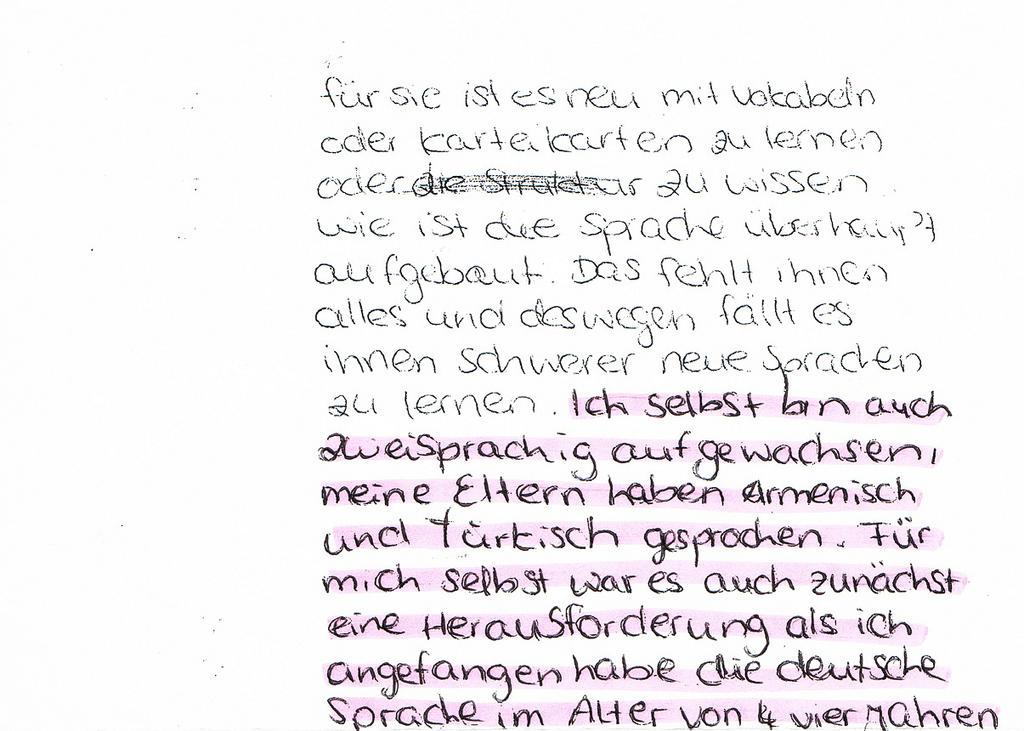 für sie ist es neu mit Vokabeln
oder Karteikarten zu lernen
oder die Struktur zu wissen
wie ist die Sprache überhaupt
aufgebaut. Das fehlt ihnen
alles und deswegen fällt es
ihnen schwerer neue Sprachen
zu lernen. Ich selbst bin auch
zweisprachig aufgewachsen,
meine Eltern haben Armenisch
und Türkisch gesprochen. Für
mich selbst war es auch zunächst
eine Herausforderung als ich
angefangen habe die deutsche
Sprache im Alter von 4 vier Jahren